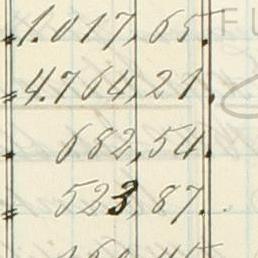 1.017,65.
4.764,21.
682,54.
523,87.